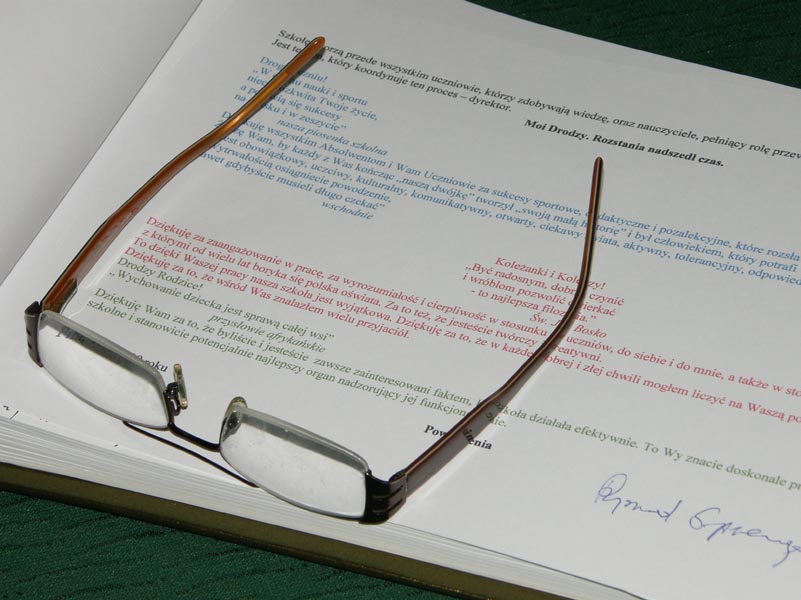 Szkołę tworzą przede wszystkim uczniowie, którzy zdobywają wiedzę, oraz nauczyciele, pełniący rolę
Jest też, który koordynuje ten proces – dyrektor.
Moi Drodzy. Rozstania nadszedł czas.
„W nauki i sportu
Twoje życie,
się sukcesy
i w zeszycie”
nasza piosenka szkolna
wszystkim Absolwentom i Wam Uczniowie za sukcesy sportowe, dydaktyczne i pozalekcyjne, które
Wam, by każdy z Was kończąc „naszą dwójkę” tworzył „swoją małą historię” i był człowiekiem, który potrafi
jest obowiązkowy, uczciwy, kulturalny, komunikatywny, otwarty, ciekawy świata, aktywny, tolerancyjny,
wytrwałością osiągniecie powodzenie,
nawet gdybyście musieli długo czekać”
wschodnie
Koleżanki i
„Być radosnym, dobrze czynić
i wróblom pozwolić ćwierkać
- to najlepsza filozofia.”
Św. Bosko
Dziękuję za zaangażowanie w pracę, za wyrozumiałość i cierpliwość w stosunku uczniów, do siebie i do mnie, a także w
z którymi od wielu lat boryka się polska oświata. Za to też, że jesteście twórczy kreatywni.
To dzięki Waszej pracy nasza szkoła jest wyjątkowa. Dziękuję za to, że w każdej dobrej i złej chwili mogłem liczyć na Waszą
Dziękuję za to, że wśród Was znalazłem wielu przyjaciół.
Drodzy Rodzice!
„Wychowanie dziecka jest sprawą całej wsi”
przysłowie afrykańskie
Dziękuję Wam za to, że byliście i jesteście zawsze zainteresowani faktem, szkoła działała efektywnie. To Wy znacie doskonale
szkolne i stanowicie potencjalnie najlepszy organ nadzorujący jej
roku